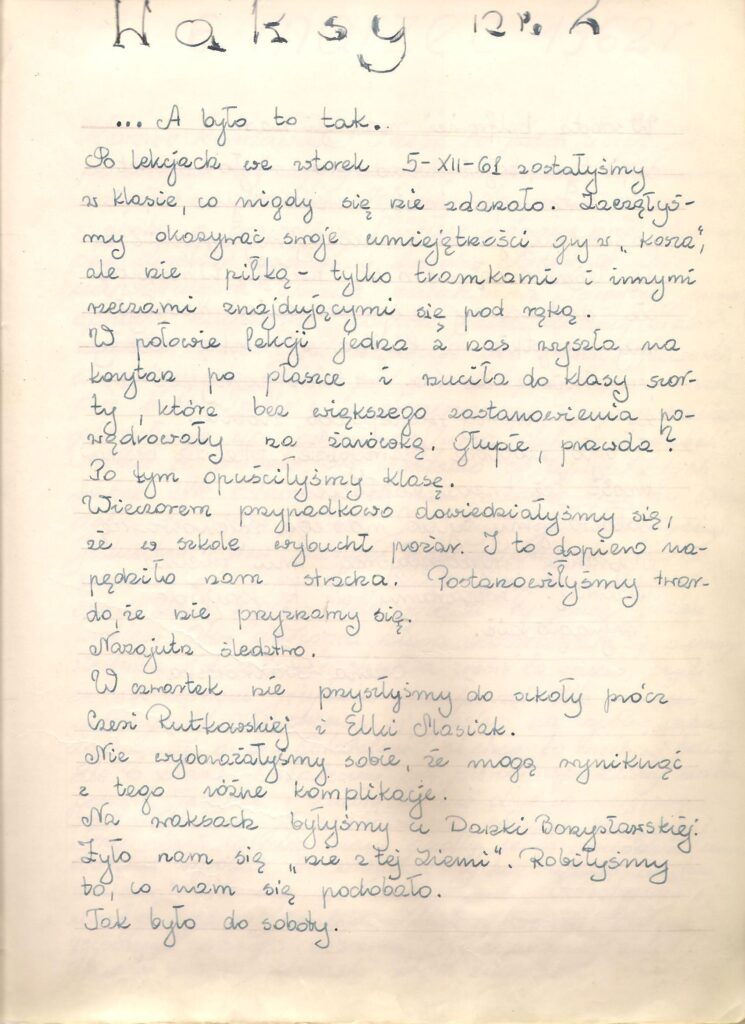 Waksy nr. 2
... A było to tak.
Po lekcjach we wtorek 5-XII-61 zostałyśmy
w klasie, co nigdy się nie zdarzało. Zaczęłyś-
my okazywać swoje umiejętności gry w „kosza",
ale nie piłką - tylko trampkami i innymi
rzeczami znajdującymi się pod ręką.
W połowie lekcji jedna z nas wyszła na
korytarz po płaszcz i rzuciła do klasy szor-
ty, które bez większego zastanowienia po-
wędrowały za żarówkę. Głupie, prawda?
Po tym opuściłyśmy klasę.
Wieczorem przypadkowo dowiedziałyśmy się,
że w szkole wybuchł pożar. I to dopiero na-
pędziło nam stracha. Postanowiłyśmy twar-
do, że nie przyznamy się.
Nazajutrz śledztwo.
W czwartek nie przyszłyśmy do szkoły prócz
Czesi Rutkowskiej i Elki Masiak.
Nie wyobrażałyśmy sobie, że mogą wyniknąć
z tego różne komplikacje.
Na waksach byłyśmy u Danki Borysławskiej.
Żyło nam się „nie z tej ziemi". Robiłyśmy
to, co nam się podobało.
Tak było do soboty.